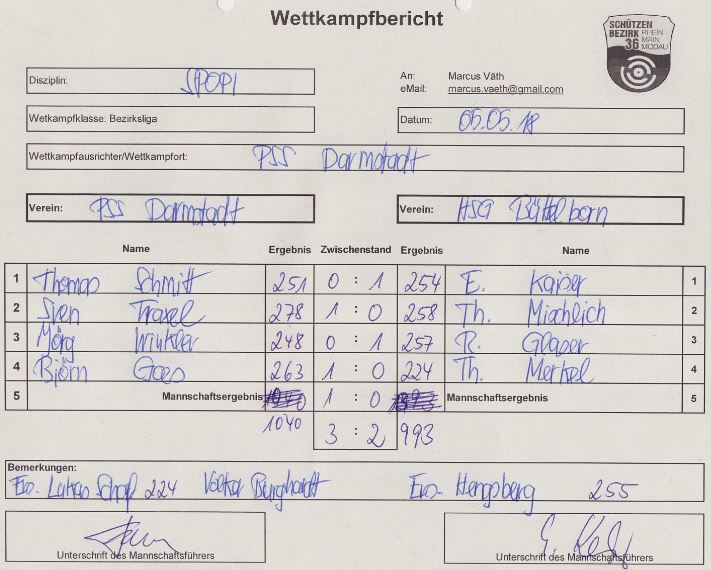 Wettkampfbericht
SCHÜTZEN
BEZIRK RHEIN
36 MAIN
MODAU
Disziplin: SPOPI
An: Marcus Väth
eMail: marcus.vaeth@gmail.com
Wetkampfklasse: Bezirksliga
Datum: 05.05.18
Wettkampfausrichter/Wettkampfort: PSS Darmstadt
Verein: PSS Darmstadt Verein: HSG Büttelborn
Name Ergebnis Zwischenstand Ergebnis Name
1 Thomas Schmitt 251 0 : 1 254 E. Kaiser 1
2 Sven Traxel 278 1 : 0 258 Th. Mischlich 2
3 Winkler 248 0 : 1 257 R. Glaser 3
4 Björn Goes 263 1 : 0 224 Th. Merkel 4
5 Mannschaftsergebnis 1 : 0 Mannschaftsergebnis 5
1040 3 : 2 993
Bemerkungen:
Ers. Lukas Schaf 224 Volker Burghardt Ers. Hengsberg 255
Unterschrift des Mannschaftsführers Unterschrift des Mannschaftsführers